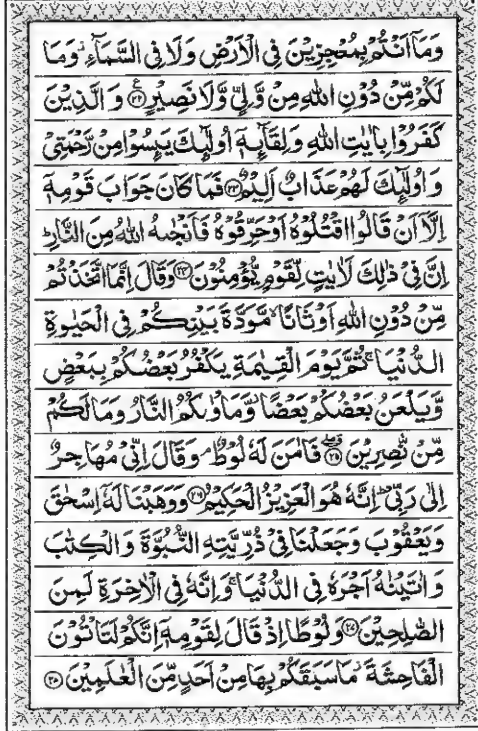 وَمَآ اَنْتُمْ بِمُعْجِزِيْنَ فِي الْاَرْضِ وَلَا فِي السَّمَآءِ ۫ وَمَا
لَكُمْ مِّنْ دُوْنِ اللّٰهِ مِنْ وَّلِيٍّ وَّلَا نَصِيْرٍ ۝۲۲ وَالَّذِيْنَ
كَفَرُوْا بِاٰيٰتِ اللّٰهِ وَلِقَآئِهٖٓ اُولٰٓئِكَ يَئِسُوْا مِنْ رَّحْمَتِيْ
وَاُولٰٓئِكَ لَهُمْ عَذَابٌ اَلِيْمٌ ۝۲۳ فَمَا كَانَ جَوَابَ قَوْمِهٖٓ
اِلَّآ اَنْ قَالُوا اقْتُلُوْهُ اَوْ حَرِّقُوْهُ فَاَنْجٰىهُ اللّٰهُ مِنَ النَّارِ ؕ
اِنَّ فِيْ ذٰلِكَ لَاٰيٰتٍ لِّقَوْمٍ يُّؤْمِنُوْنَ ۝۲۴ وَقَالَ اِنَّمَا اتَّخَذْتُمْ
مِّنْ دُوْنِ اللّٰهِ اَوْثَانًا ۙ مَّوَدَّةَ بَيْنِكُمْ فِي الْحَيٰوةِ
الدُّنْيَا ۚ ثُمَّ يَوْمَ الْقِيٰمَةِ يَكْفُرُ بَعْضُكُمْ بِبَعْضٍ
وَّيَلْعَنُ بَعْضُكُمْ بَعْضًا ۫ وَّمَاْوٰىكُمُ النَّارُ وَمَا لَكُمْ
مِّنْ نّٰصِرِيْنَ ۝۲۵ فَاٰمَنَ لَهٗ لُوْطٌ ۘ وَقَالَ اِنِّيْ مُهَاجِرٌ
اِلٰى رَبِّيْ ؕ اِنَّهٗ هُوَ الْعَزِيْزُ الْحَكِيْمُ ۝۲۶ وَوَهَبْنَا لَهٗٓ اِسْحٰقَ
وَيَعْقُوْبَ وَجَعَلْنَا فِيْ ذُرِّيَّتِهِ النُّبُوَّةَ وَالْكِتٰبَ
وَاٰتَيْنٰهُ اَجْرَهٗ فِي الدُّنْيَا ۚ وَاِنَّهٗ فِي الْاٰخِرَةِ لَمِنَ
الصّٰلِحِيْنَ ۝۲۷ وَلُوْطًا اِذْ قَالَ لِقَوْمِهٖٓ اِنَّكُمْ لَتَاْتُوْنَ
الْفَاحِشَةَ ۫ مَا سَبَقَكُمْ بِهَا مِنْ اَحَدٍ مِّنَ الْعٰلَمِيْنَ ۝۲۸